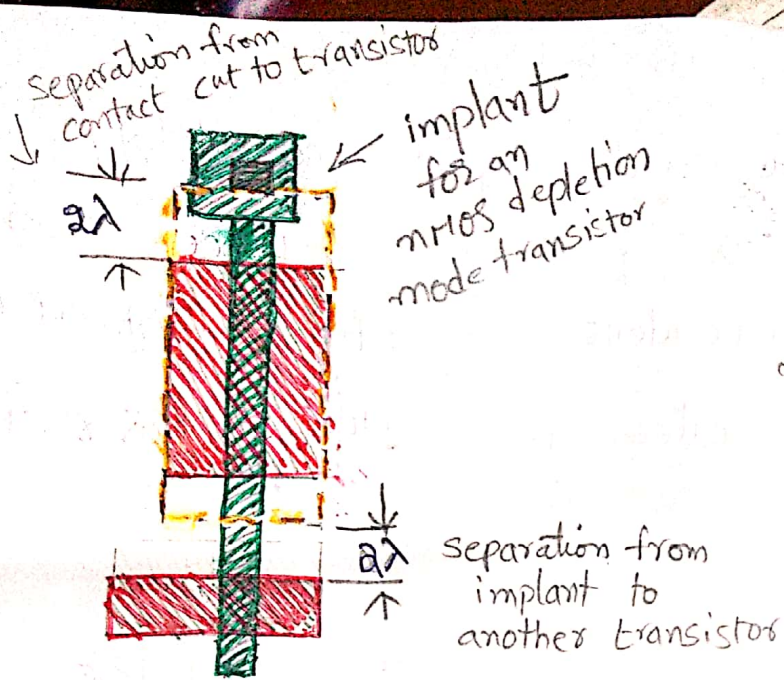 separation from
contact cut to transistor
2λ
implant
for an
nMOS depletion
mode transistor
2λ
separation from
implant to
another transistor